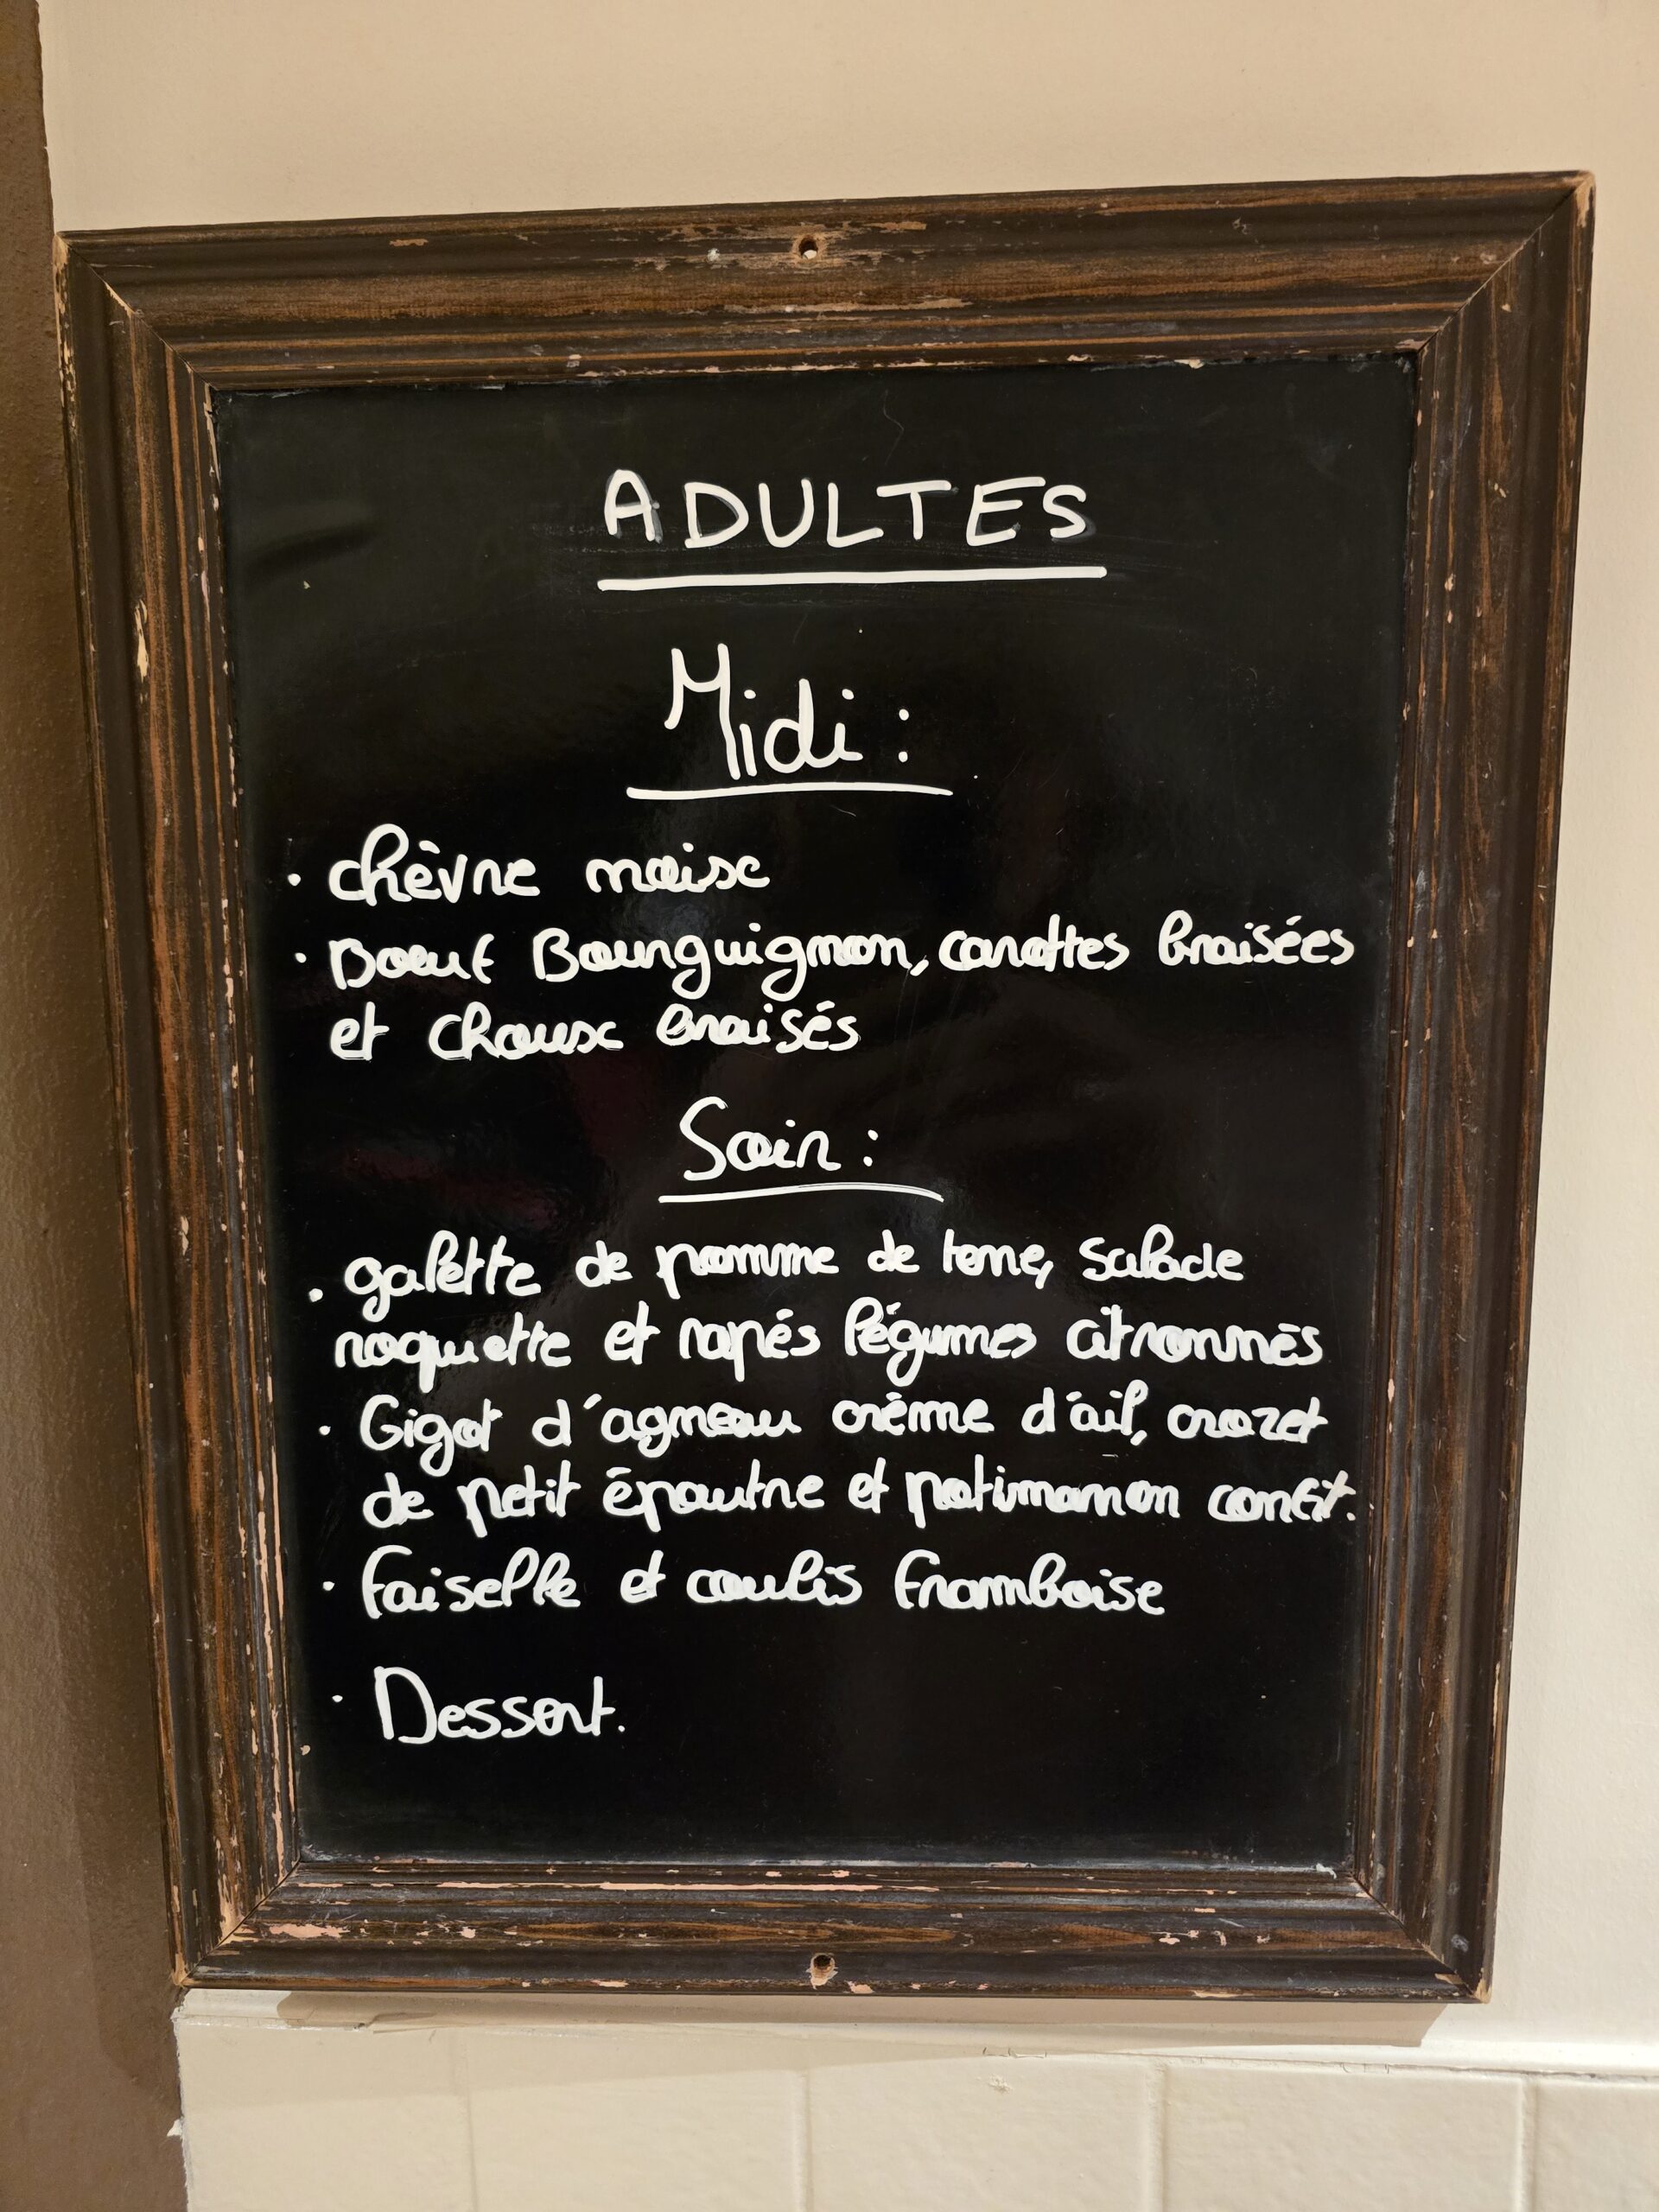 ADULTES
Midi :
· chèvre noix
· Boeuf Bourguignon, carottes braisées
et choux braisés
Soir :
· galette de pomme de terre, salade
roquette et rapés légumes citronnés
· Gigot d'agneau crème d'ail, crozet
de petit épautre et potimarron confit.
· Faiselle et coulis framboise
· Dessert.